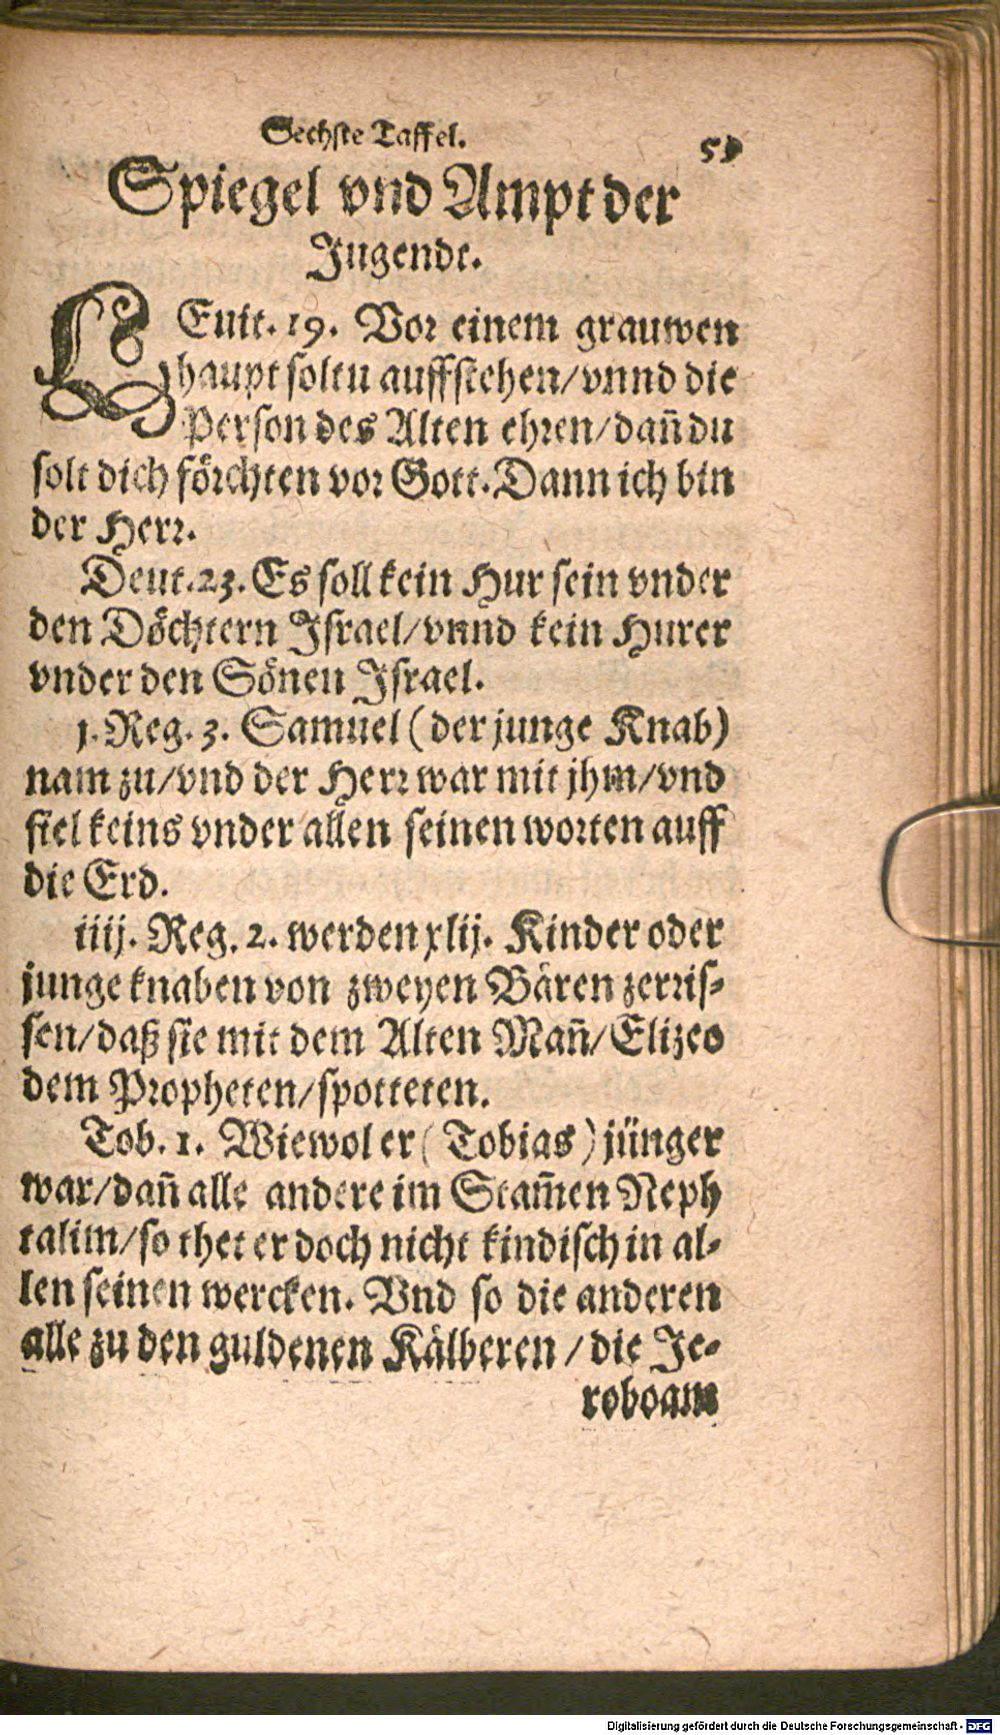 Sechste Taffel.
Spiegel vnd Ampt der
Jugendt.
LEuit. 19. Vor einem grauwen
haupt soltu auffstehen/vnnd die
Person des Alten ehren/dañ du
solt dich förchten vor Gott. Dann ich bin
der Herr.
Deut. 23. Es soll kein Hur sein vnder
den Döchtern Israel/vnnd kein Hurer
vnder den Sönen Israel.
j. Reg. 3. Samuel (der junge Knab)
nam zu/vnd der Herr war mit jhm/vnd
fiel keins vnder allen seinen worten auff
die Erd.
iiij. Reg. 2. werden xlij. Kinder oder
junge knaben von zweyen Bären zerris-
sen/daß sie mit dem Alten Mañ/Elizeo
dem Propheten/spotteten.
Tob. 1. Wiewol er (Tobias) jünger
war/dañ alle andere im Stam̃en Neph
talim/so thet er doch nicht kindisch in al-
len seinen wercken. Vnd so die anderen
alle zu den guldenen Kälberen/die Je-
roboam
Digitalisierung gefördert durch die Deutsche Forschungsgemeinschaft - DFG